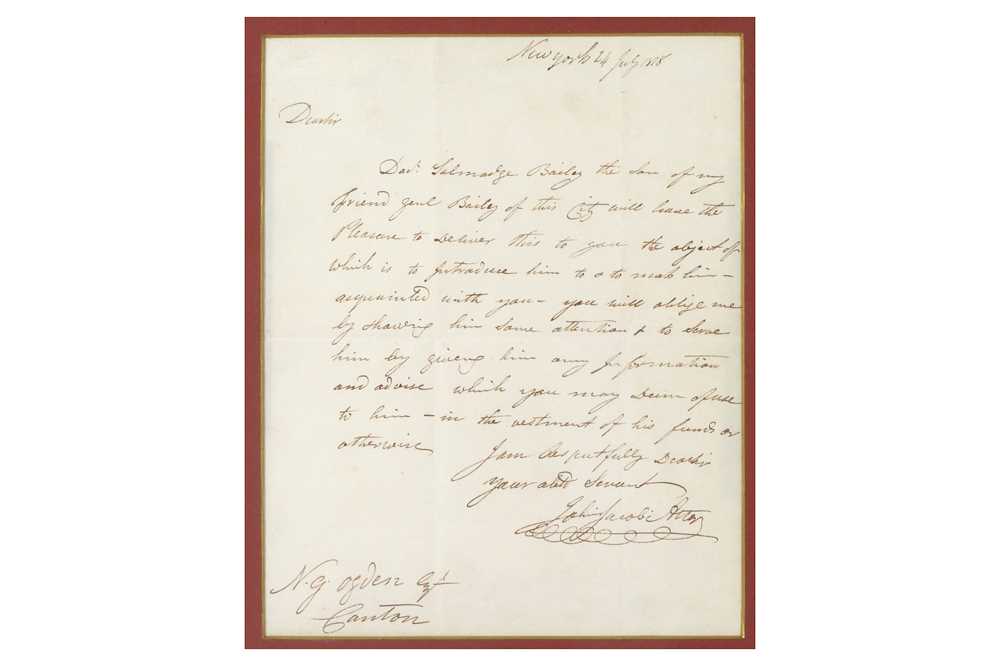 New york 24 July 1818
Dearsir
Davd. Talmadge Bailey the Son of my
friend genl Bailey of this City will have the
Pleasure to Deliver this to you the object of
which is to Introduce him to & to make him –
acquainted with you – you will oblige me
by showing him Some attention & to Serve
him by giveng him any Information
and advise which you may Deem of use
to him – in the vestment of his funds or
otherwise
I am Respectfully Dearsir
Your obd Servant
John Jacob Astor
N. G. Ogden Esqr
Canton